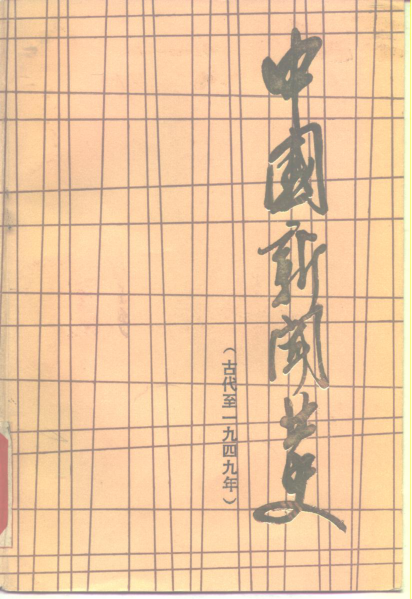 中國新闻业史
(古代至一九四九年)